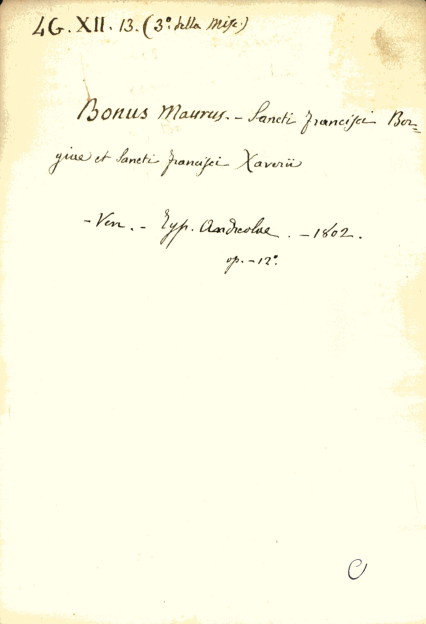 4G. XII. 13. (3º della Misc.)
Bonus Maurus. - Sancti Francisci Bor=
giae et Sancti Francisci Xaverii
- Ven. - Typ. Andreolae. - 1802.
op. - 12º.
C